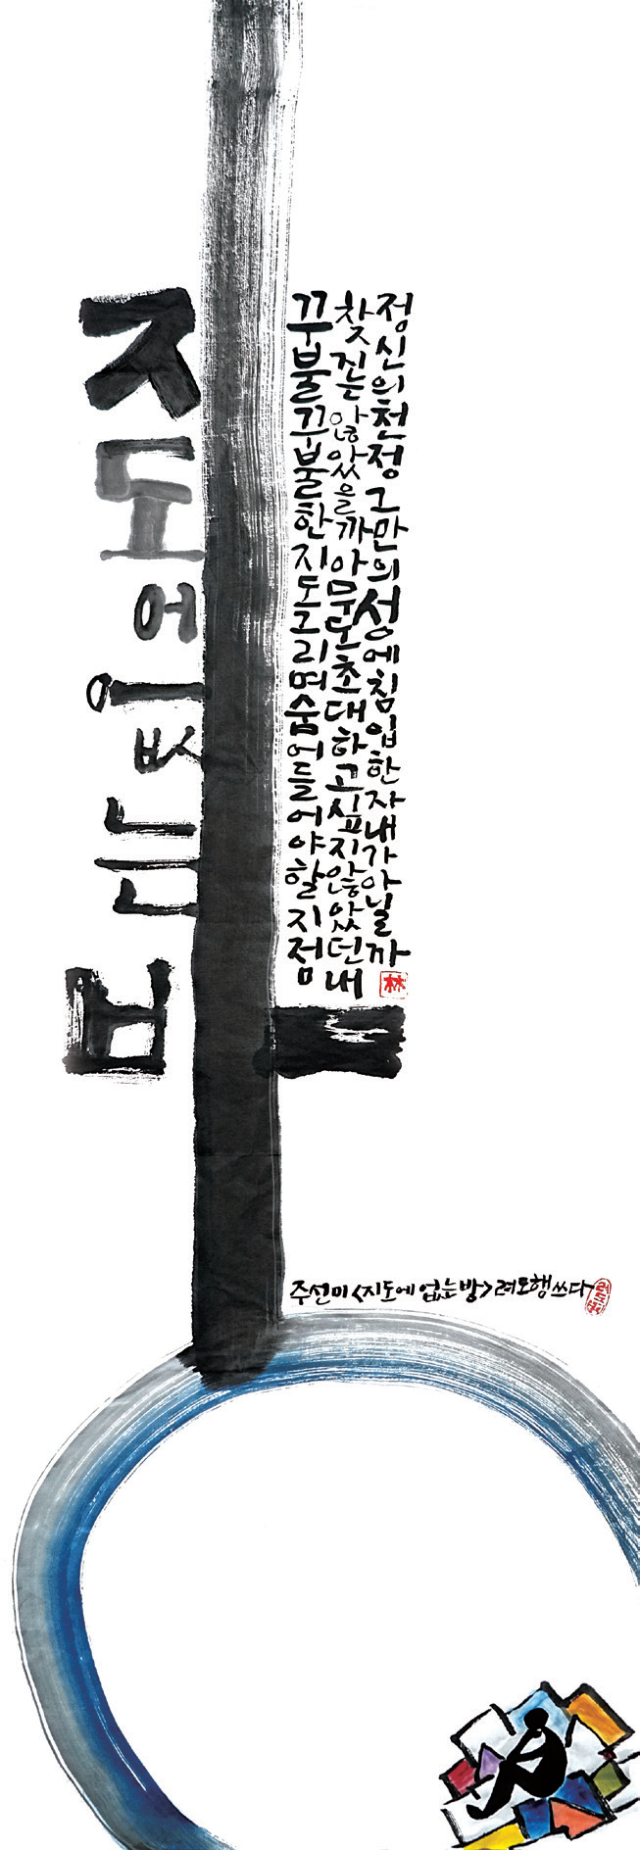 지도에 없는 방
꾸불꾸불한 지도 그리며 숨어들어야 할 지점
찾진 않았을까 아무도 초대하고 싶지 않았던 내
정신의 천정 그만의 성에 침입한 자 내가 아닐까
林
주선미 <지도에 없는 방> 려오행 쓰다